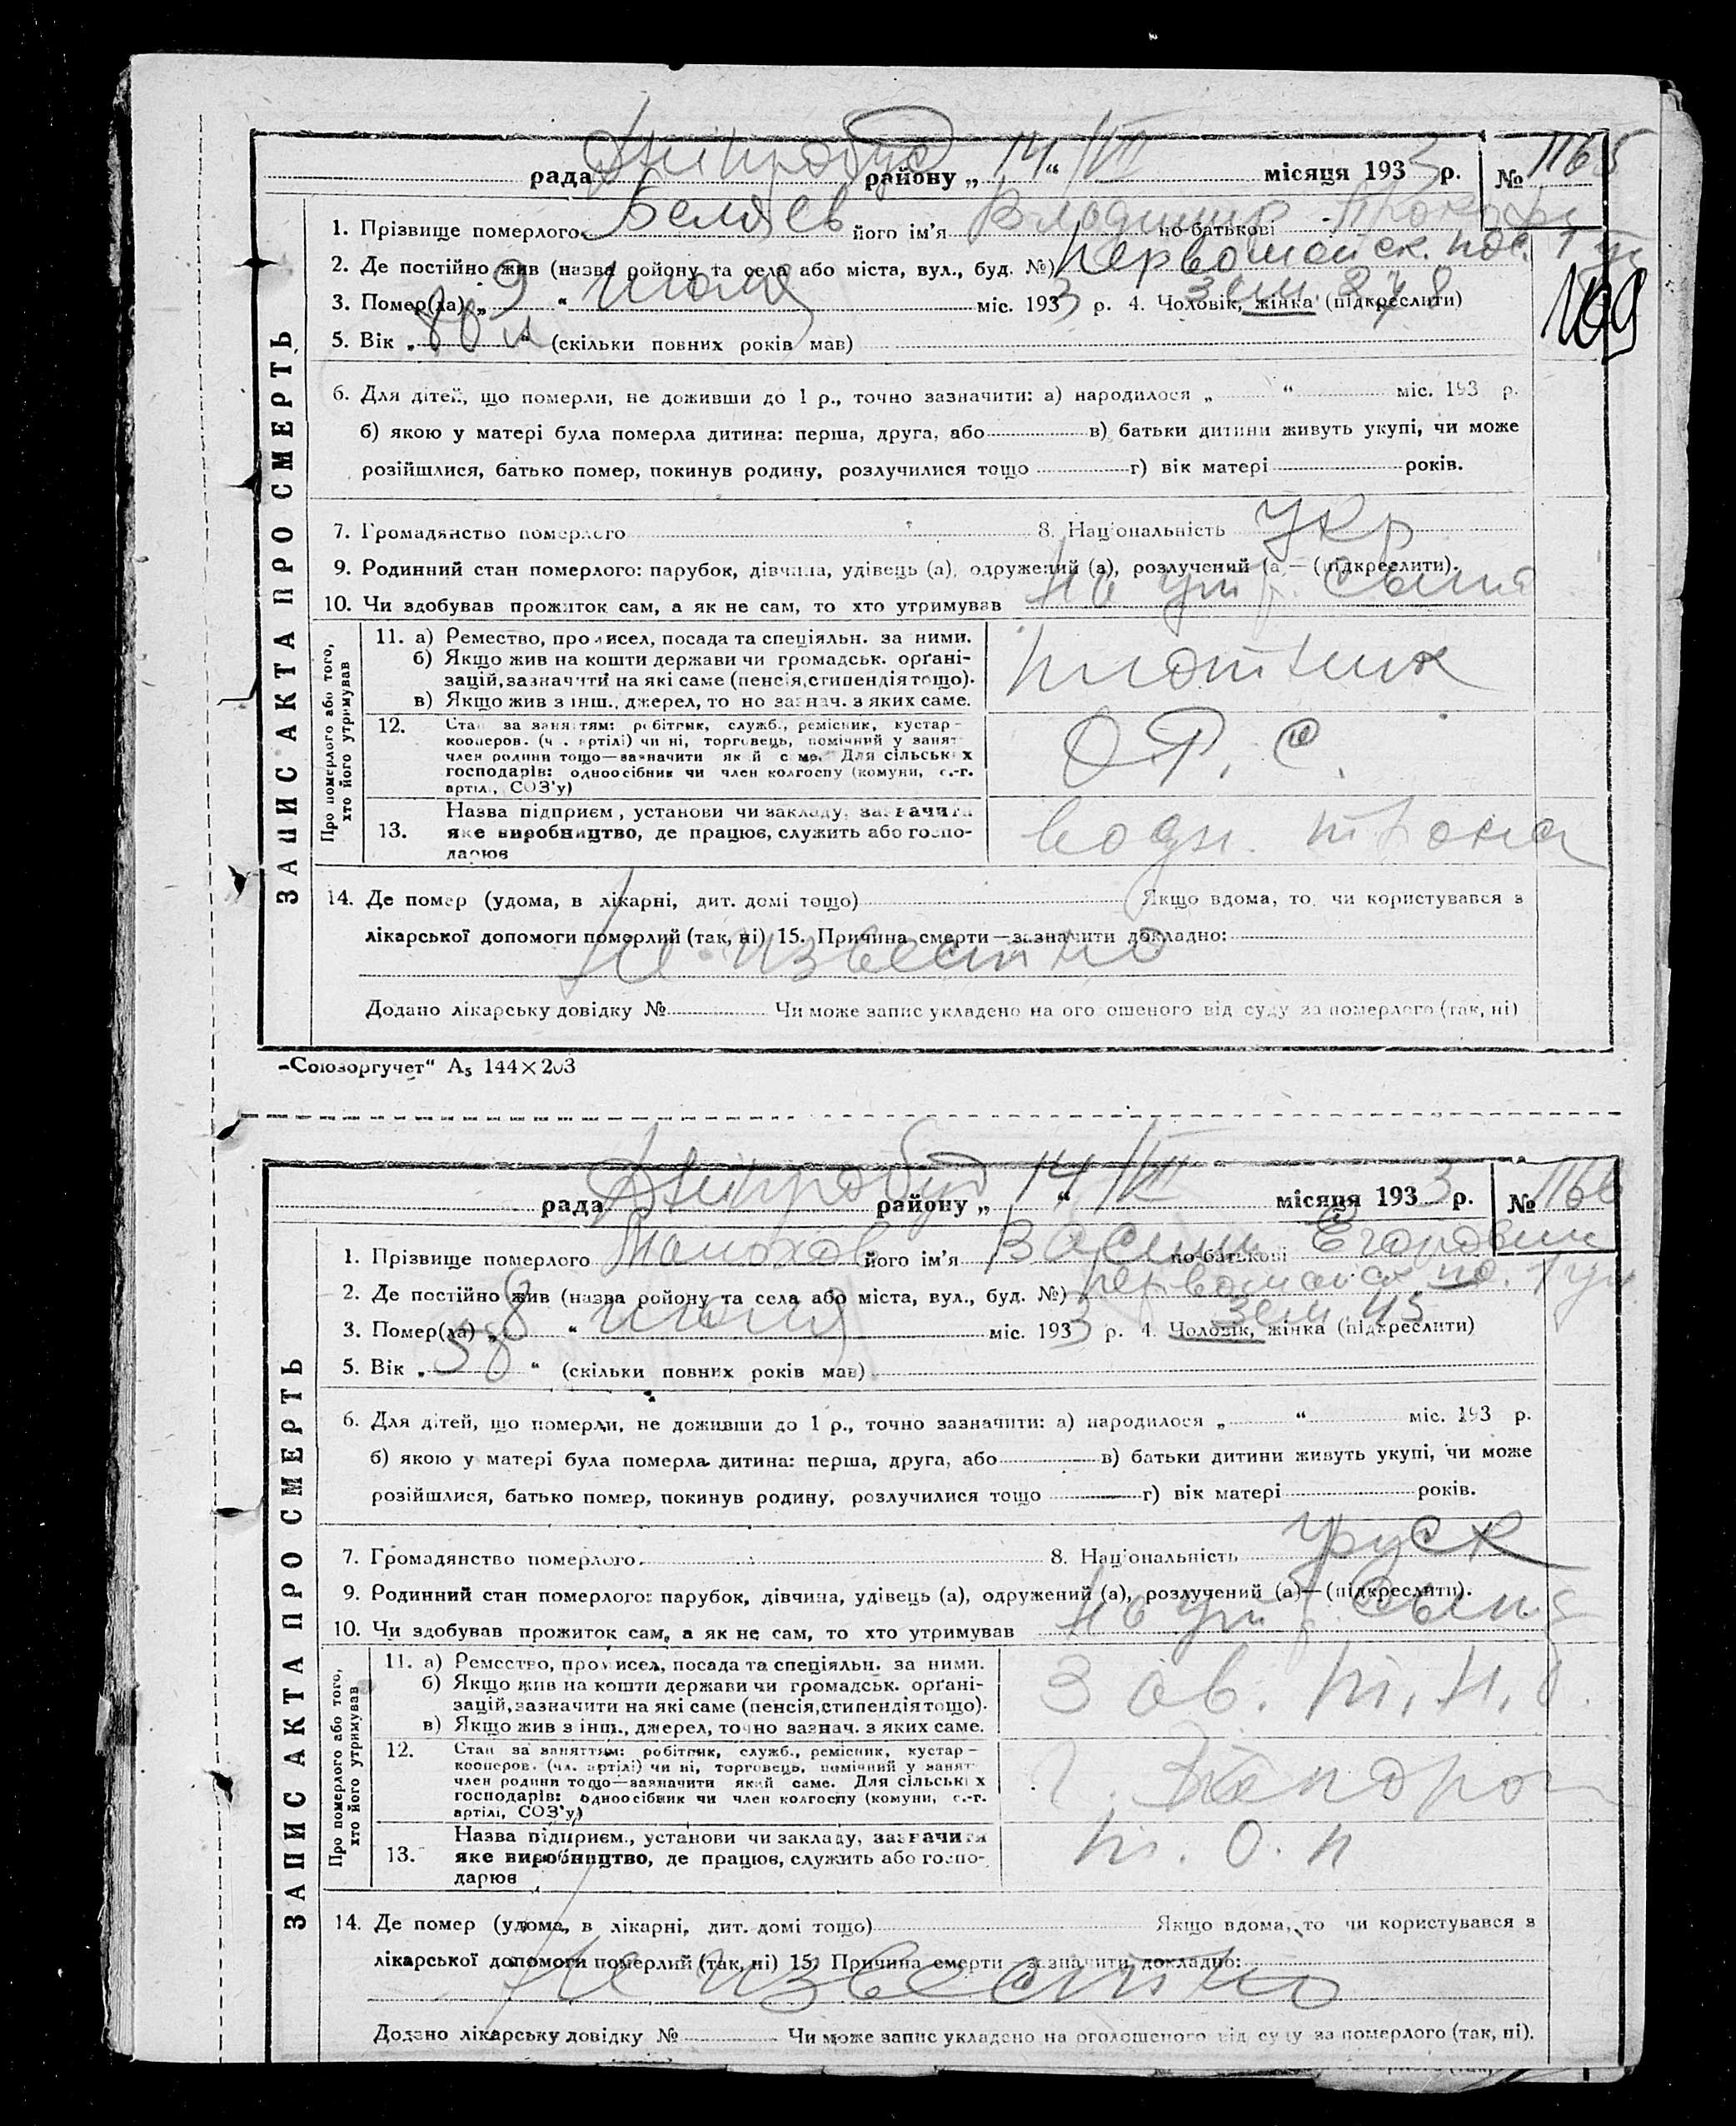 Дніпробуд 14 VII 1165
рада районy „ “ місяця 1933 р. №
1. Прізвище померлого Беляев його ім'я Владимир по-батькові
2. Де постійно жив (назва ройону та села або міста, вул., буд. №) Первомайск. пос. 1
зем. 278
3. Помер(ла) „9“ июля міс. 1933 р. 4. Чоловік, жінка (підкреслити)
109
5. Вік „ “ (скільки повних років мав)
6. Для дітей, що померли, не доживши до 1 р., точно зазначити: а) народилося „ “ міс. 193 р.
б) якою у матері була померла дитина: перша, друга, або в) батьки дитини живуть укупі, чи може
розійшлися, батько помер, покинув родину, розлучилися тощо г) вік матері років.
7. Громадянство померлого 8. Національність Укр
9. Родинний стан померлого: парубок, дівчина, удівець (а), одружений (а), розлучений (а — (підкреслити).
10. Чи здобував прожиток сам, а як не сам, то хто утримував На ут. сына
ЗАПИС АКТА ПРО СМЕРТЬ
Про померлого або того, хто його утримував
11. а) Ремество, промисел, посада та спеціяльн. за ними.
б) Якщо жив на кошти держави чи громадськ. орґані-
зацій, зазначити на які саме (пенсія, стипендія тощо).
в) Якщо жив з інш., джерел, то но зазнач. з яких саме.
плотник
12. Стан за заняттям: робітник, служб., ремісник, кустар-
кооперов. (ч . артілі) чи ні, торговець, помічний у занят
член родини тощо—зазначити як й с ме. Для сільськ х
господарів: одноосібник чи член колгоспу (комуни, с.-г.
артілі, СОЗ'у)
13. Назва підприєм , установи чи закладу, зазначити
яке виробництво, де працює, служить або госпо-
дарює
14. Де помер (удома, в лікарні, дит. домі тощо) Якщо вдома, то чи користувався з
лікарської допомоги померлий (так, ні) 15. Причина смерти—зазначити докладно:
Не известно
Додано лікарську довідку № Чи може запис укладено на ого ошеного від суду за померлого (так, ні)
„Союзоргучет“ А5 144×203
Дніпробуд 14 VII 1166
рада району „ “ місяця 1933 р. №
1. Прізвище померлого його ім'я по-батькові Егорович
2. Де постійно жив (назва ройону та села або міста, вул., буд. №)
зем. 45
3. Помер(ла) „8“ июля міс. 1933 р. 4. Чоловік, жінка (підкреслити)
5. Вік „58“ (скільки повних років мав)
6. Для дітей, що померли, не доживши до 1 р., точно зазначити: а) народилося „ “ міс. 193 р.
б) якою у матері була померла дитина: перша, друга, або в) батьки дитини живуть укупі, чи може
розійшлися, батько помер, покинув родину, розлучилися тощо г) вік матері років.
7. Громадянство померлого. 8. Національність руск
9. Родинний стан померлого: парубок, дівчина, удівець (а), одружений (а), розлучений (а)—(підкреслити).
10. Чи здобував прожиток сам, а як не сам, то хто утримував На ут. сына
ЗАПИС АКТА ПРО СМЕРТЬ
Про померлого або того, хто його утримував
11. а) Ремество, промисел, посада та спеціяльн. за ними.
б) Якщо жив на кошти держави чи громадськ. орґані-
зацій, зазначити на які саме (пенсія, стипендія тощо).
в) Якщо жив з інш., джерел, точно зазнач. з яких саме.
Зав.
12. Стан за заняттям: робітник, служб., ремісник, кустар-
кооперов. (чл. артілі) чи ні, торговець, помічний у занят
член родини тощо—зазначити який саме. Для сільськ х
господарів: одноосібник чи член колгоспу (комуни, с.-г.
артілі, СОЗ'у)
13. Назва підприєм., установи чи закладу, зазначити
яке виробництво, де працює, служить або госпо-
дарює
14. Де помер (удома, в лікарні, дит. домі тощо) Якщо вдома, то чи користувався з
лікарської допомоги померлий (так, ні) 15. Причина смерти зазначити докладно:
Не известно
Додано лікарську довідку № Чи може запис укладено на оголошеного від суду за померлого (так, ні).